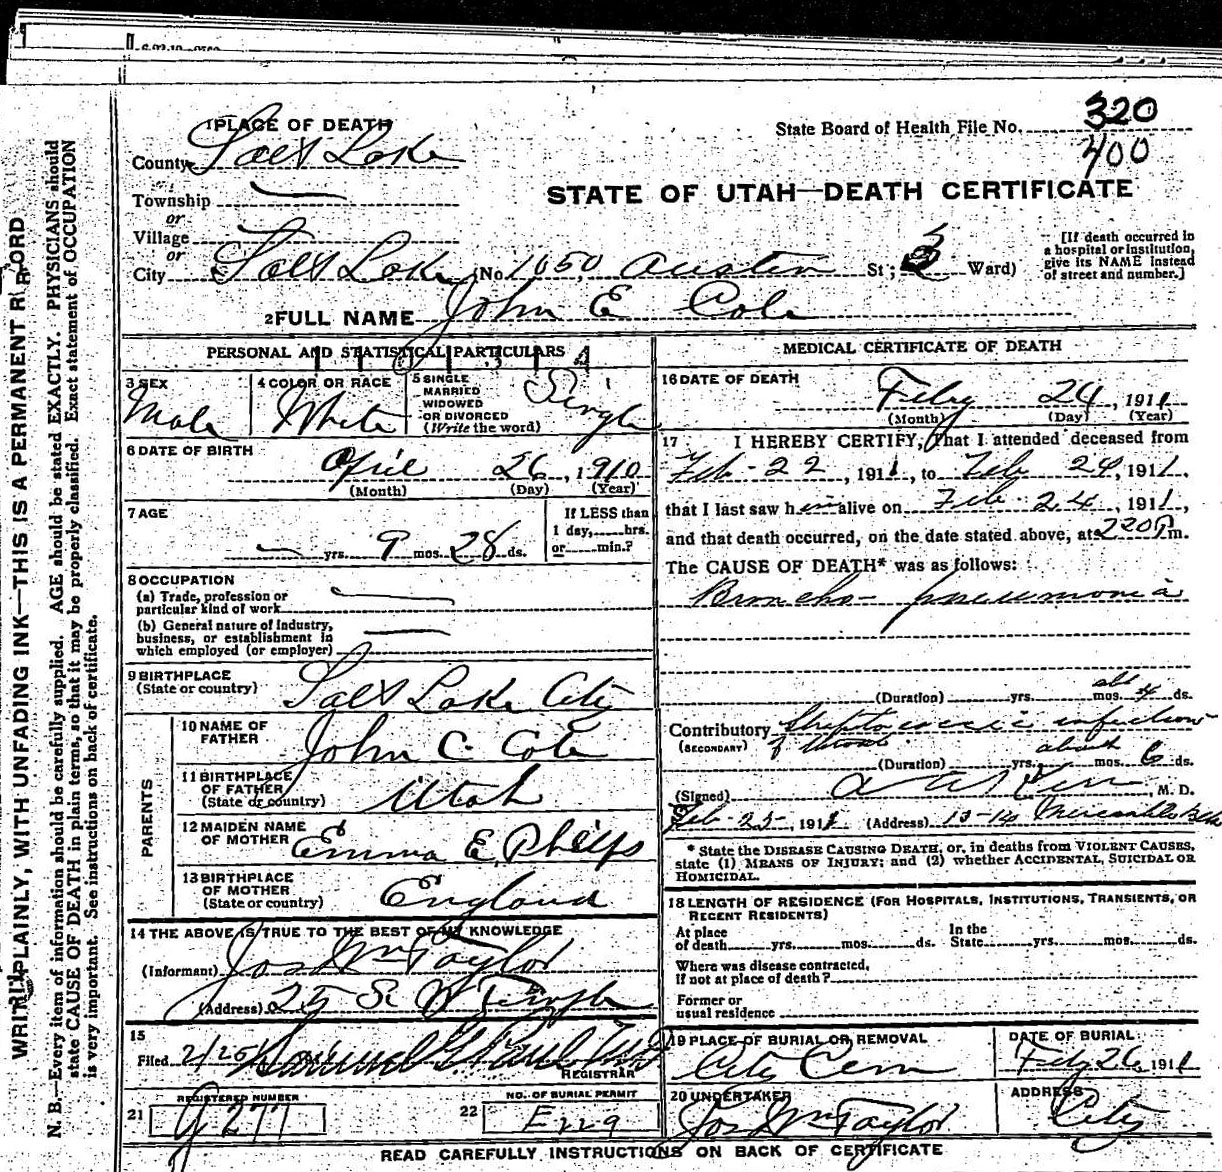 1 PLACE OF DEATH
State Board of Health File No. 320
400
County Salt Lake
STATE OF UTAH—DEATH CERTIFICATE
Township
or
Village
or
City Salt Lake (No. 1050 Austin St; 3 Ward)
[If death occurred in
a hospital or institution,
give its NAME instead
of street and number.]
2 FULL NAME John E Cole
PERSONAL AND STATISTICAL PARTICULARS
3 SEX
Male
4 COLOR OR RACE
White
5 SINGLE
MARRIED
WIDOWED
OR DIVORCED
(Write the word)
Single
6 DATE OF BIRTH
April 26, 1910
(Month) (Day) (Year)
7 AGE
yrs. 9 mos. 28 ds.
If LESS than
1 day, hrs.
or min.?
8 OCCUPATION
(a) Trade, profession or
particular kind of work
(b) General nature of industry,
business, or establishment in
which employed (or employer)
9 BIRTHPLACE
(State or country)
Salt Lake City
PARENTS
10 NAME OF
FATHER
John C. Cole
11 BIRTHPLACE
OF FATHER
(State or country)
Utah
12 MAIDEN NAME
OF MOTHER
Emma E. Phelps
13 BIRTHPLACE
OF MOTHER
(State or country)
England
14 THE ABOVE IS TRUE TO THE BEST OF MY KNOWLEDGE
(Informant) Jos Wm Taylor
(Address) 25 S. W Temple
15
Filed 2/25/
REGISTRAR
REGISTERED NUMBER
21 G 277
NO. OF BURIAL PERMIT
22 E729
MEDICAL CERTIFICATE OF DEATH
16 DATE OF DEATH
Feby 24, 1911
(Month) (Day) (Year)
17 I HEREBY CERTIFY, That I attended deceased from
Feb. 22, 1911, to Feb 24, 1911,
that I last saw him alive on Feb. 24, 1911,
and that death occurred, on the date stated above, at 220 P m.
The CAUSE OF DEATH* was as follows:
Broncho-pneumonia
(Duration) yrs. mos. 4 ds.
Contributory Streptococcic infection
(SECONDARY) of throat
(Duration) yrs. mos. about 6 ds.
(Signed) , M. D.
Feb. 25, 1911 (Address) 13-14 Mercantile Blk
* State the DISEASE CAUSING DEATH, or, in deaths from VIOLENT CAUSES,
state (1) MEANS OF INJURY; and (2) whether ACCIDENTAL, SUICIDAL OR
HOMICIDAL.
18 LENGTH OF RESIDENCE (FOR HOSPITALS, INSTITUTIONS, TRANSIENTS, OR
RECENT RESIDENTS)
At place
of death yrs. mos. ds.
In the
State yrs. mos. ds.
Where was disease contracted,
if not at place of death?
Former or
usual residence
19 PLACE OF BURIAL OR REMOVAL
City Cem
DATE OF BURIAL
Feby 26, 1911
20 UNDERTAKER
Jos Wm Taylor
ADDRESS
City
READ CAREFULLY INSTRUCTIONS ON BACK OF CERTIFICATE
WRITE PLAINLY, WITH UNFADING INK—THIS IS A PERMANENT RECORD
N. B.—Every item of information should be carefully supplied. AGE should be stated EXACTLY. PHYSICIANS should
state CAUSE OF DEATH in plain terms, so that it may be properly classified. Exact statement of OCCUPATION
is very important. See instructions on back of certificate.